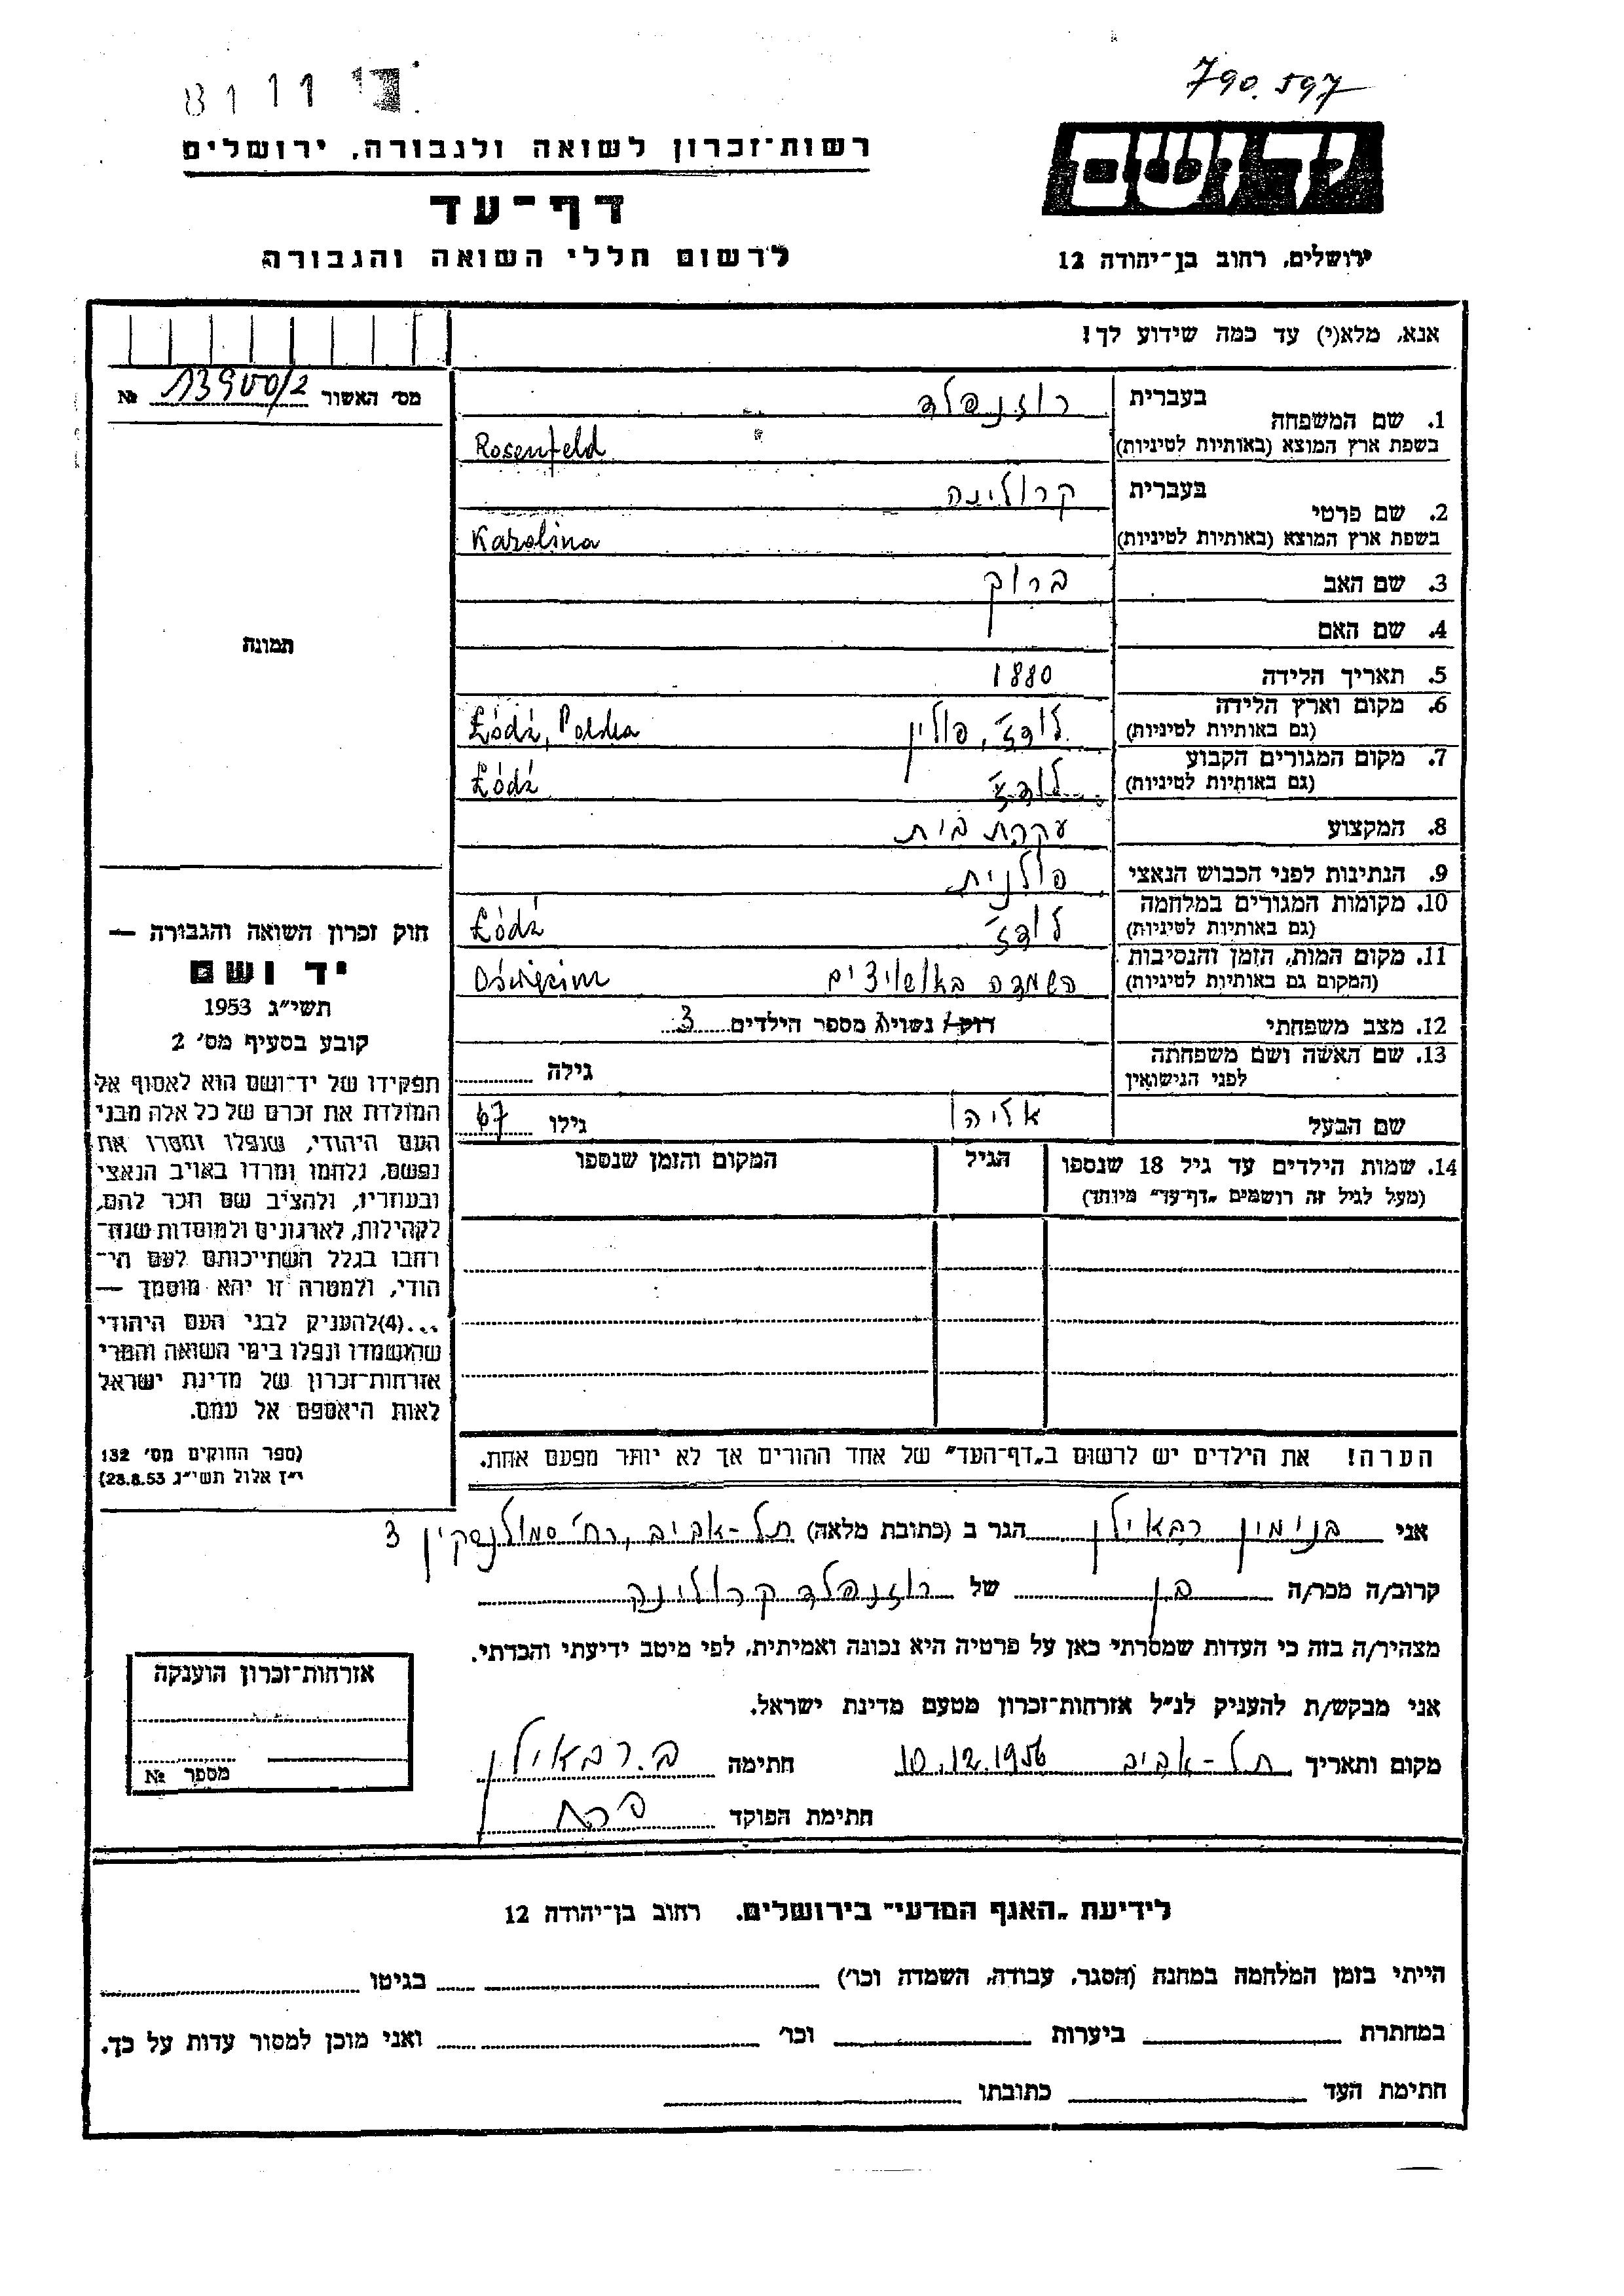 790.597
רשות־זכרון לשואה ולגבורה, ירושלים
יד ושם
דף־עד
לרשום חללי השואה והגבורה
ירושלים, רחוב בן־יהודה 12
אנא, מלא(י) עד כמה שידוע לך!
מס׳ האשור № 13900/2
בעברית רוזנפלד
1. שם המשפחה
בשפת ארץ המוצא (באותיות לטיניות) Rosenfeld
בעברית קרולינה
2. שם פרטי
בשפת ארץ המוצא (באותיות לטיניות) Karolina
3. שם האב ברוך
4. שם האם
תמונה
5. תאריך הלידה 1880
6. מקום וארץ הלידה
(גם באותיות לטיניות) לודז׳, פולין Łódź, Polska
7. מקום המגורים הקבוע
(גם באותיות לטיניות) לודז׳ Łódź
8. המקצוע עקרת בית
9. הנתינות לפני הכבוש הנאצי פולנית
10. מקומות המגורים במלחמה
(גם באותיות לטיניות) לודז׳ Łódź
11. מקום המות, הזמן והנסיבות
(המקום גם באותיות לטיניות) השמדה באושויצים Oświęcim
12. מצב משפחתי רוק/ה נשוי/אה מספר הילדים 3
13. שם האשה ושם משפחתה
לפני הנישואין גילה
שם הבעל אליהו גילו 67
14. שמות הילדים עד גיל 18 שנספו הגיל המקום והזמן שנספו
(מעל לגיל זה רושמים „דף־עד״ מיוחד)
חוק זכרון השואה והגבורה —
יד ושם
תשי״ג 1953
קובע בסעיף מס׳ 2
תפקידו של יד־ושם הוא לאסוף אל
המולדת את זכרם של כל אלה מבני
העם היהודי, שנפלו ומסרו את
נפשם, נלחמו ומרדו באויב הנאצי
ובעוזריו, ולהציב שם וזכר להם,
לקהילות, לארגונים ולמוסדות שנח־
רבו בגלל השתייכותם לעם הי־
הודי, ולמטרה זו יהא מוסמך —
...(4)להעניק לבני העם היהודי
שהושמדו ונפלו בימי השואה והמרי
אזרחות־זכרון של מדינת ישראל
לאות היאספם אל עמם.
(ספר החוקים מס׳ 132
י״ז אלול תשי״ג 28.8.53)
הערה! את הילדים יש לרשום ב„דף־העד״ של אחד ההורים אך לא יותר מפעם אחת.
אני בנימין רבאילן הגר ב (כתובת מלאה) תל-אביב, רח׳ סמולנסקין 3
קרוב/ה מכר/ה בן של רוזנפלד קרולינה
מצהיר/ה בזה כי העדות שמסרתי כאן על פרטיה היא נכונה ואמיתית, לפי מיטב ידיעתי והכרתי.
אני מבקש/ת להעניק לנ״ל אזרחות־זכרון מטעם מדינת ישראל.
מקום ותאריך תל-אביב 10.12.1956 חתימה ב. רבאילן
חתימת הפוקד
אזרחות־זכרון הוענקה
מספר №
לידיעת „האגף המדעי״ בירושלים. רחוב בן־יהודה 12
הייתי בזמן המלחמה במחנה (הסגר, עבודה, השמדה וכו׳) בגיטו
במחתרת ביערות וכו׳ ואני מוכן למסור עדות על כך.
חתימת העד כתובתו